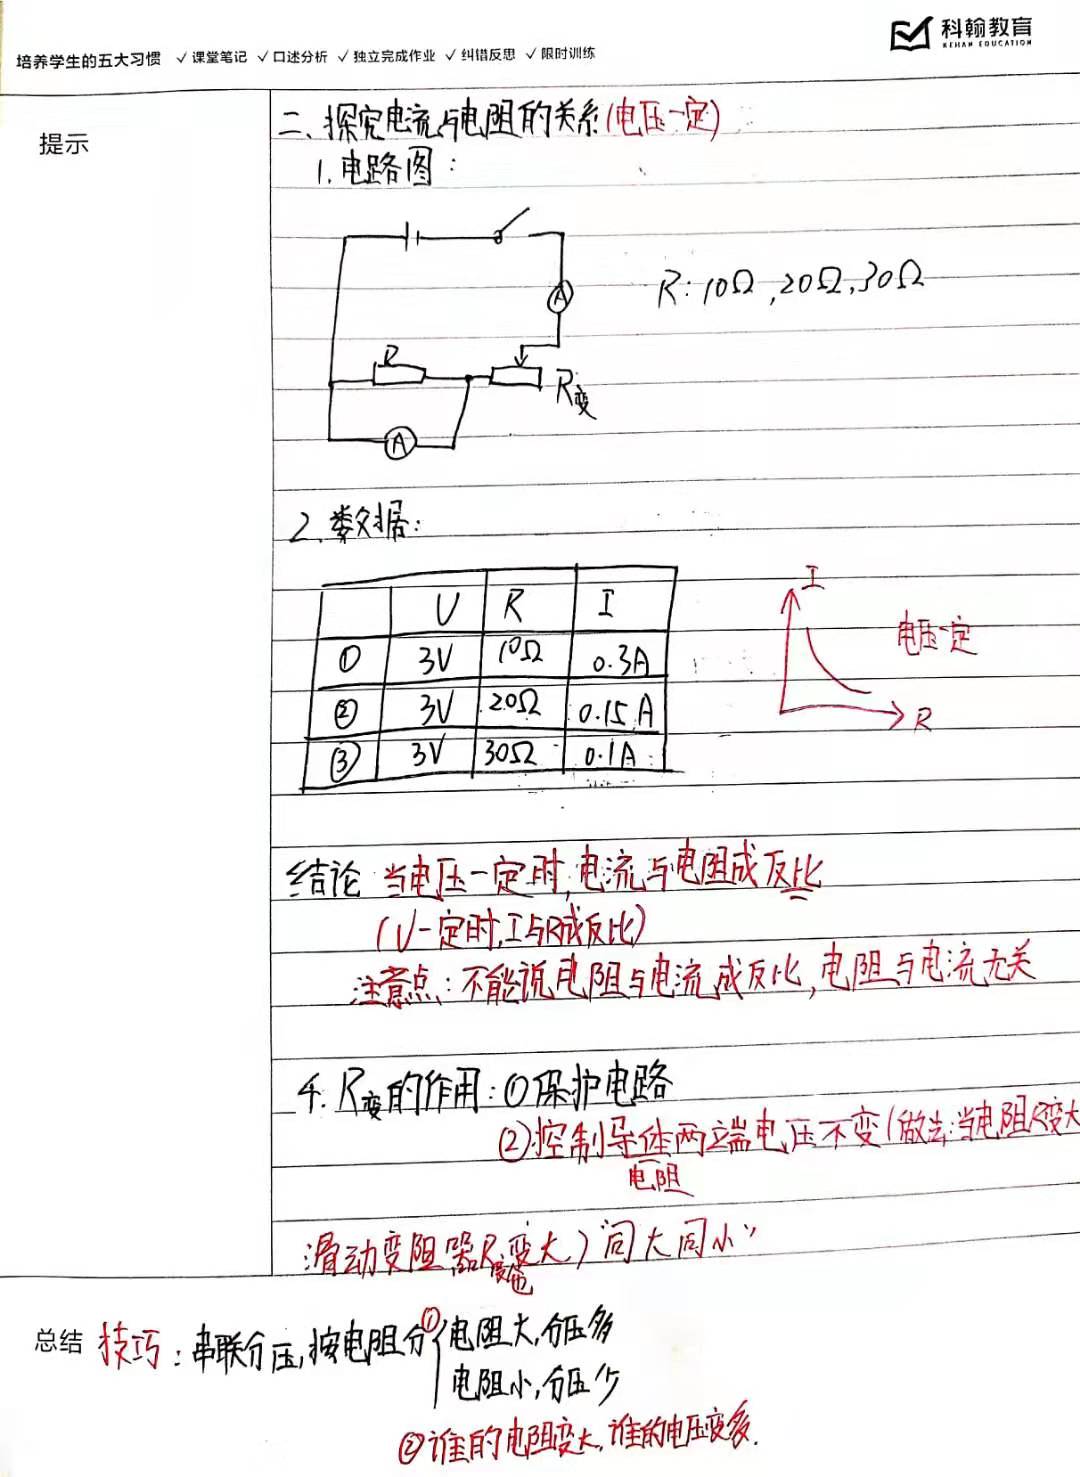 科翰教育
KEHAN EDUCATION
培养学生的五大习惯 ✓课堂笔记 ✓口述分析 ✓独立完成作业 ✓纠错反思 ✓限时训练
提示
二、探究电流与电阻的关系(电压一定)
1.电路图:
A
R:10Ω,20Ω,30Ω
R
R变
A
2.数据:
U R I
① 3V 10Ω 0.3A
② 3V 20Ω 0.15A
③ 3V 30Ω 0.1A
I
电压一定
R
结论 当电压一定时,电流与电阻成反比
(U一定时,I与R成反比)
注意点:不能说电阻与电流成反比,电阻与电流无关
4.R变的作用:①保护电路
②控制导体两端电压不变(做法:当电阻R变大
电阻
滑动变阻器R变也变大)"同大同小"
总结 技巧:串联分压,按电阻分①电阻大,分压多
电阻小,分压少
②谁的电阻变大,谁的电压变多.